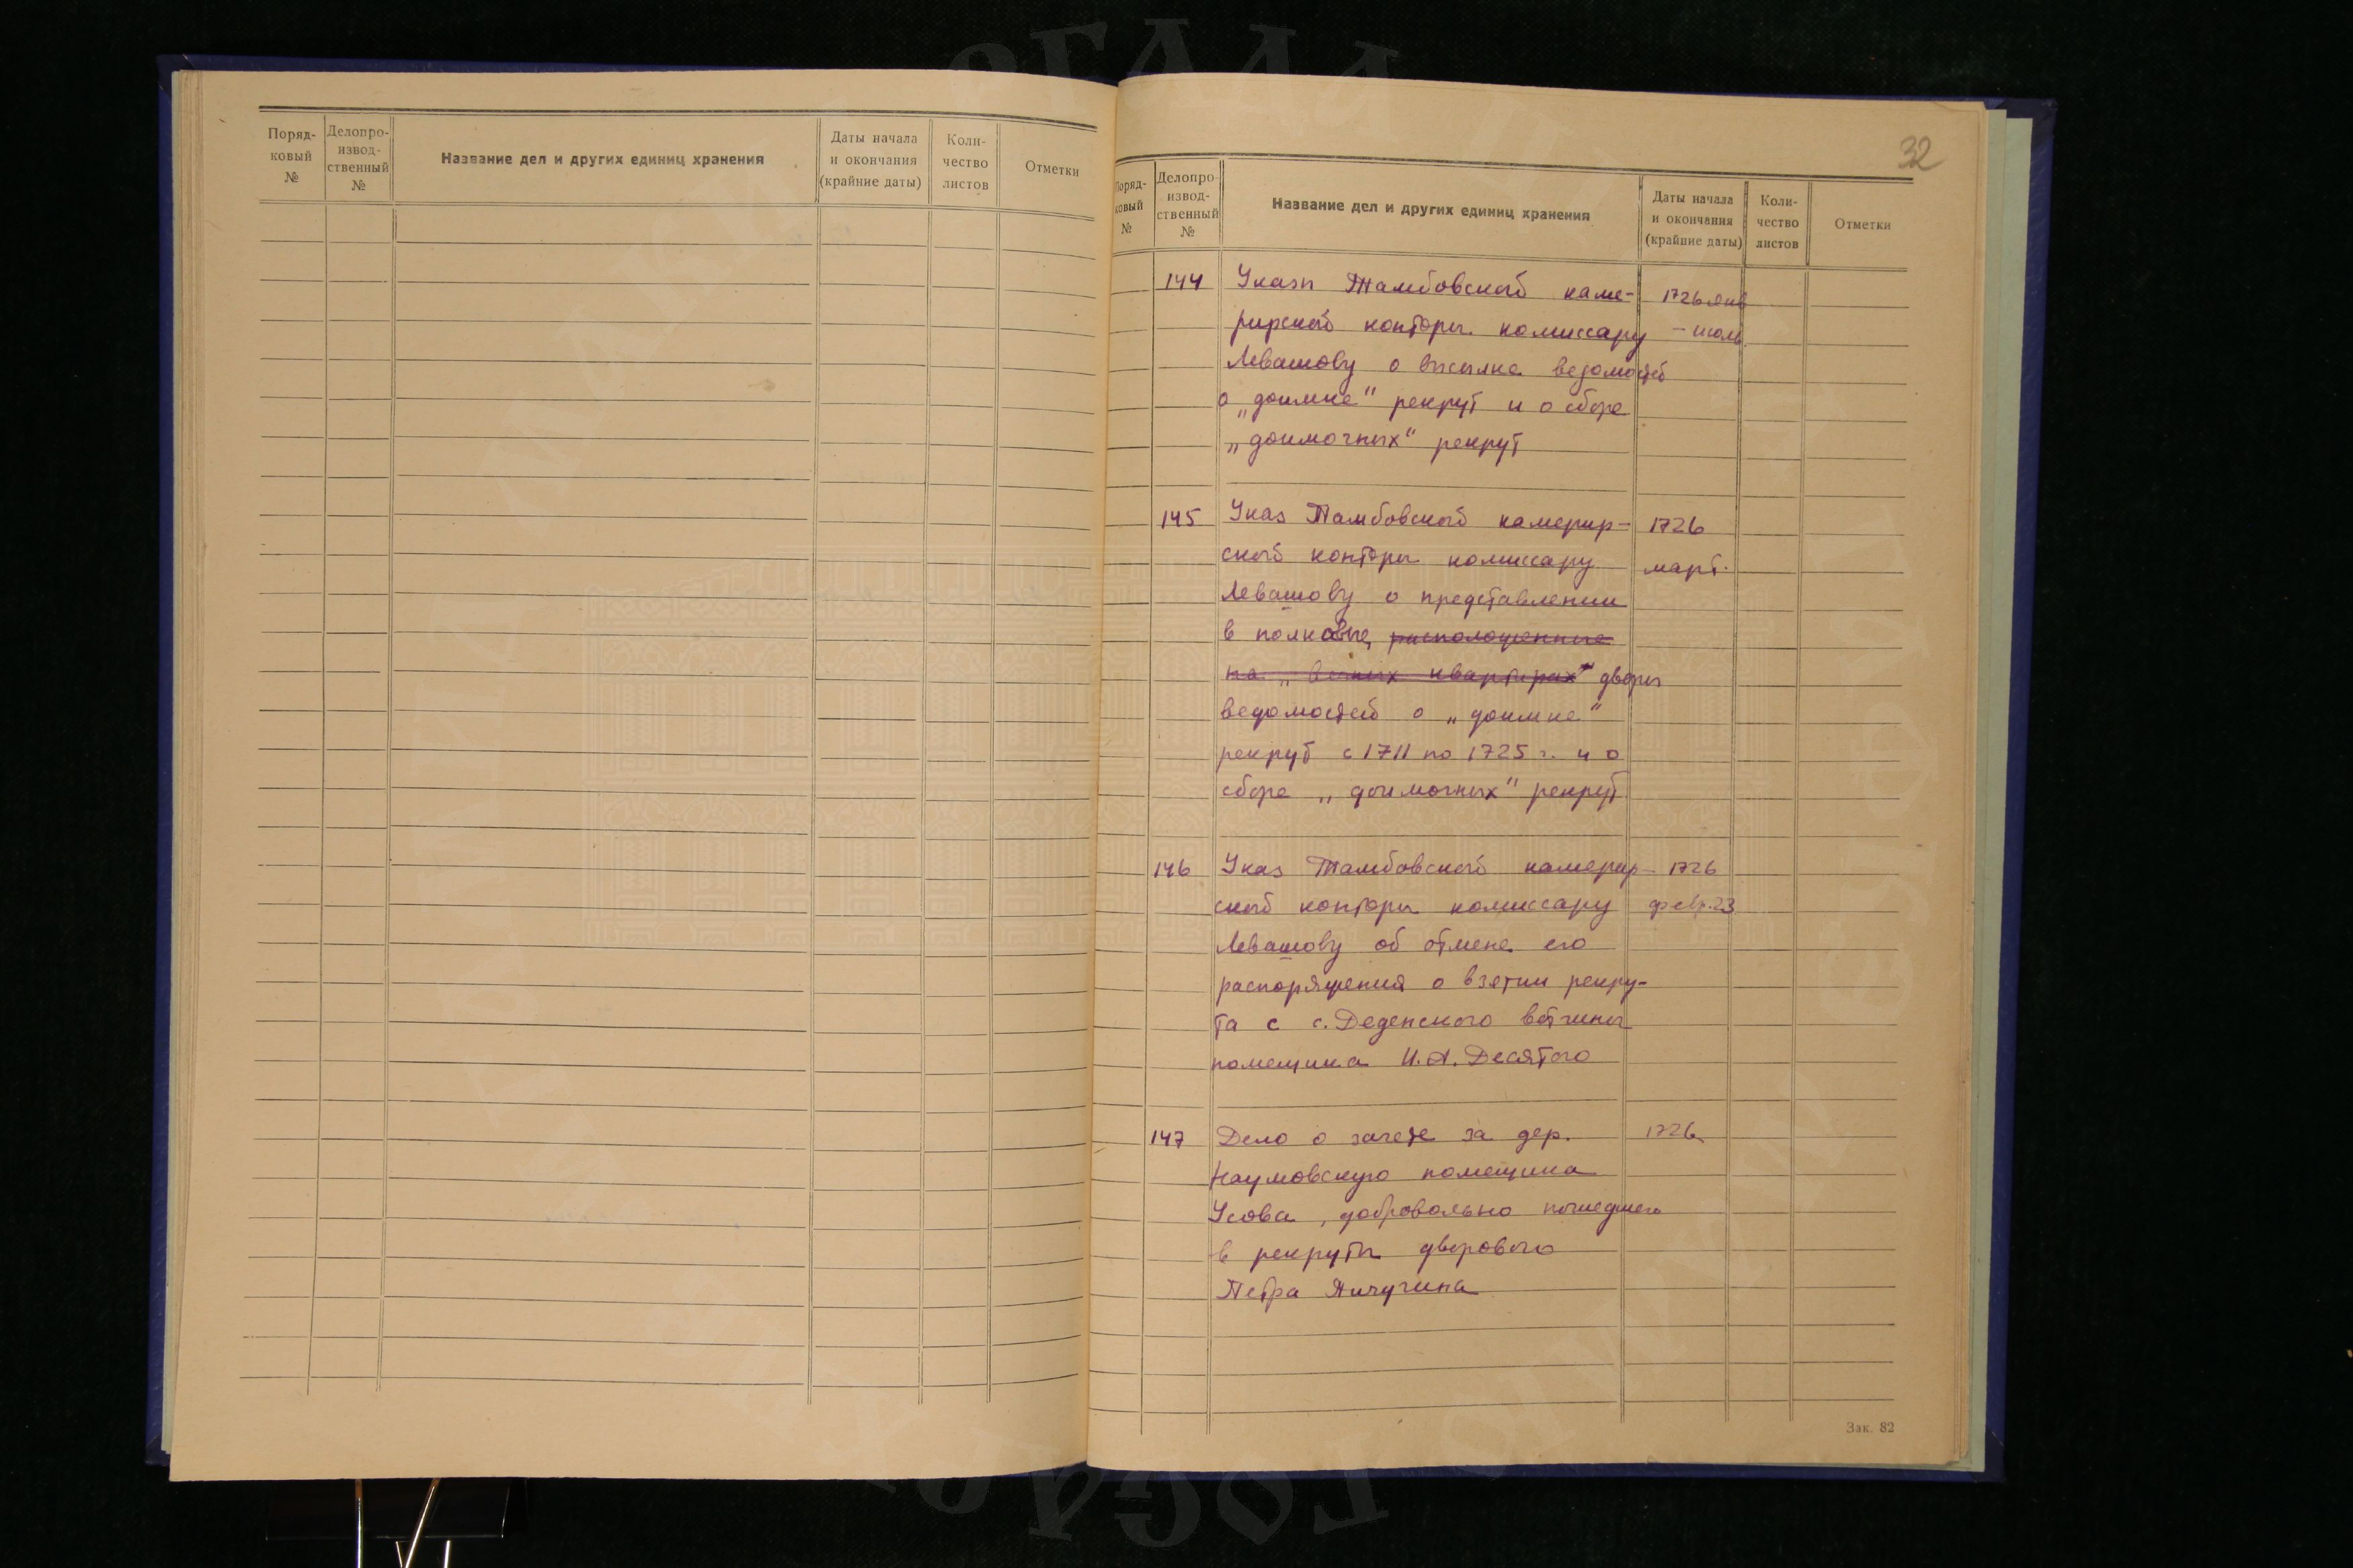 Поряд-
ковый
№
Делопро-
извод-
ственный
№
Название дел и других единиц хранения
Даты начала
и окончания
(крайние даты)
Коли-
чество
листов
Отметки
32
Поряд-
ковый
№
Делопро-
извод-
ственный
№
Название дел и других единиц хранения
Даты начала
и окончания
(крайние даты)
Коли-
чество
листов
Отметки
144 Указы Тамбовской каме- 1726 янв
рирской конторы комиссару - июль
Левашову о высылке ведомостей
о „доимке" рекрут и о сборе
„доимочных" рекрут
145 Указ Тамбовской камерир- 1726
ской конторы комиссару март.
Левашову о представлении
в полковые, расположенные
на „вечных квартирах" дворы
ведомостей о „доимке"
рекрут с 1711 по 1725 г. и о
сборе „доимочных" рекрут
146 Указ Тамбовской камерир- 1726
ской конторы комиссару февр. 23
Левашову об отмене его
распоряжения о взятии рекру-
та с с. Деденского вотчины
помещика И. А. Десятого
147 Дело о зачете за дер. 1726
Наумовскую помещика
Усова, добровольно пошедшего
в рекруты дворового
Петра Пичугина
Зак. 82